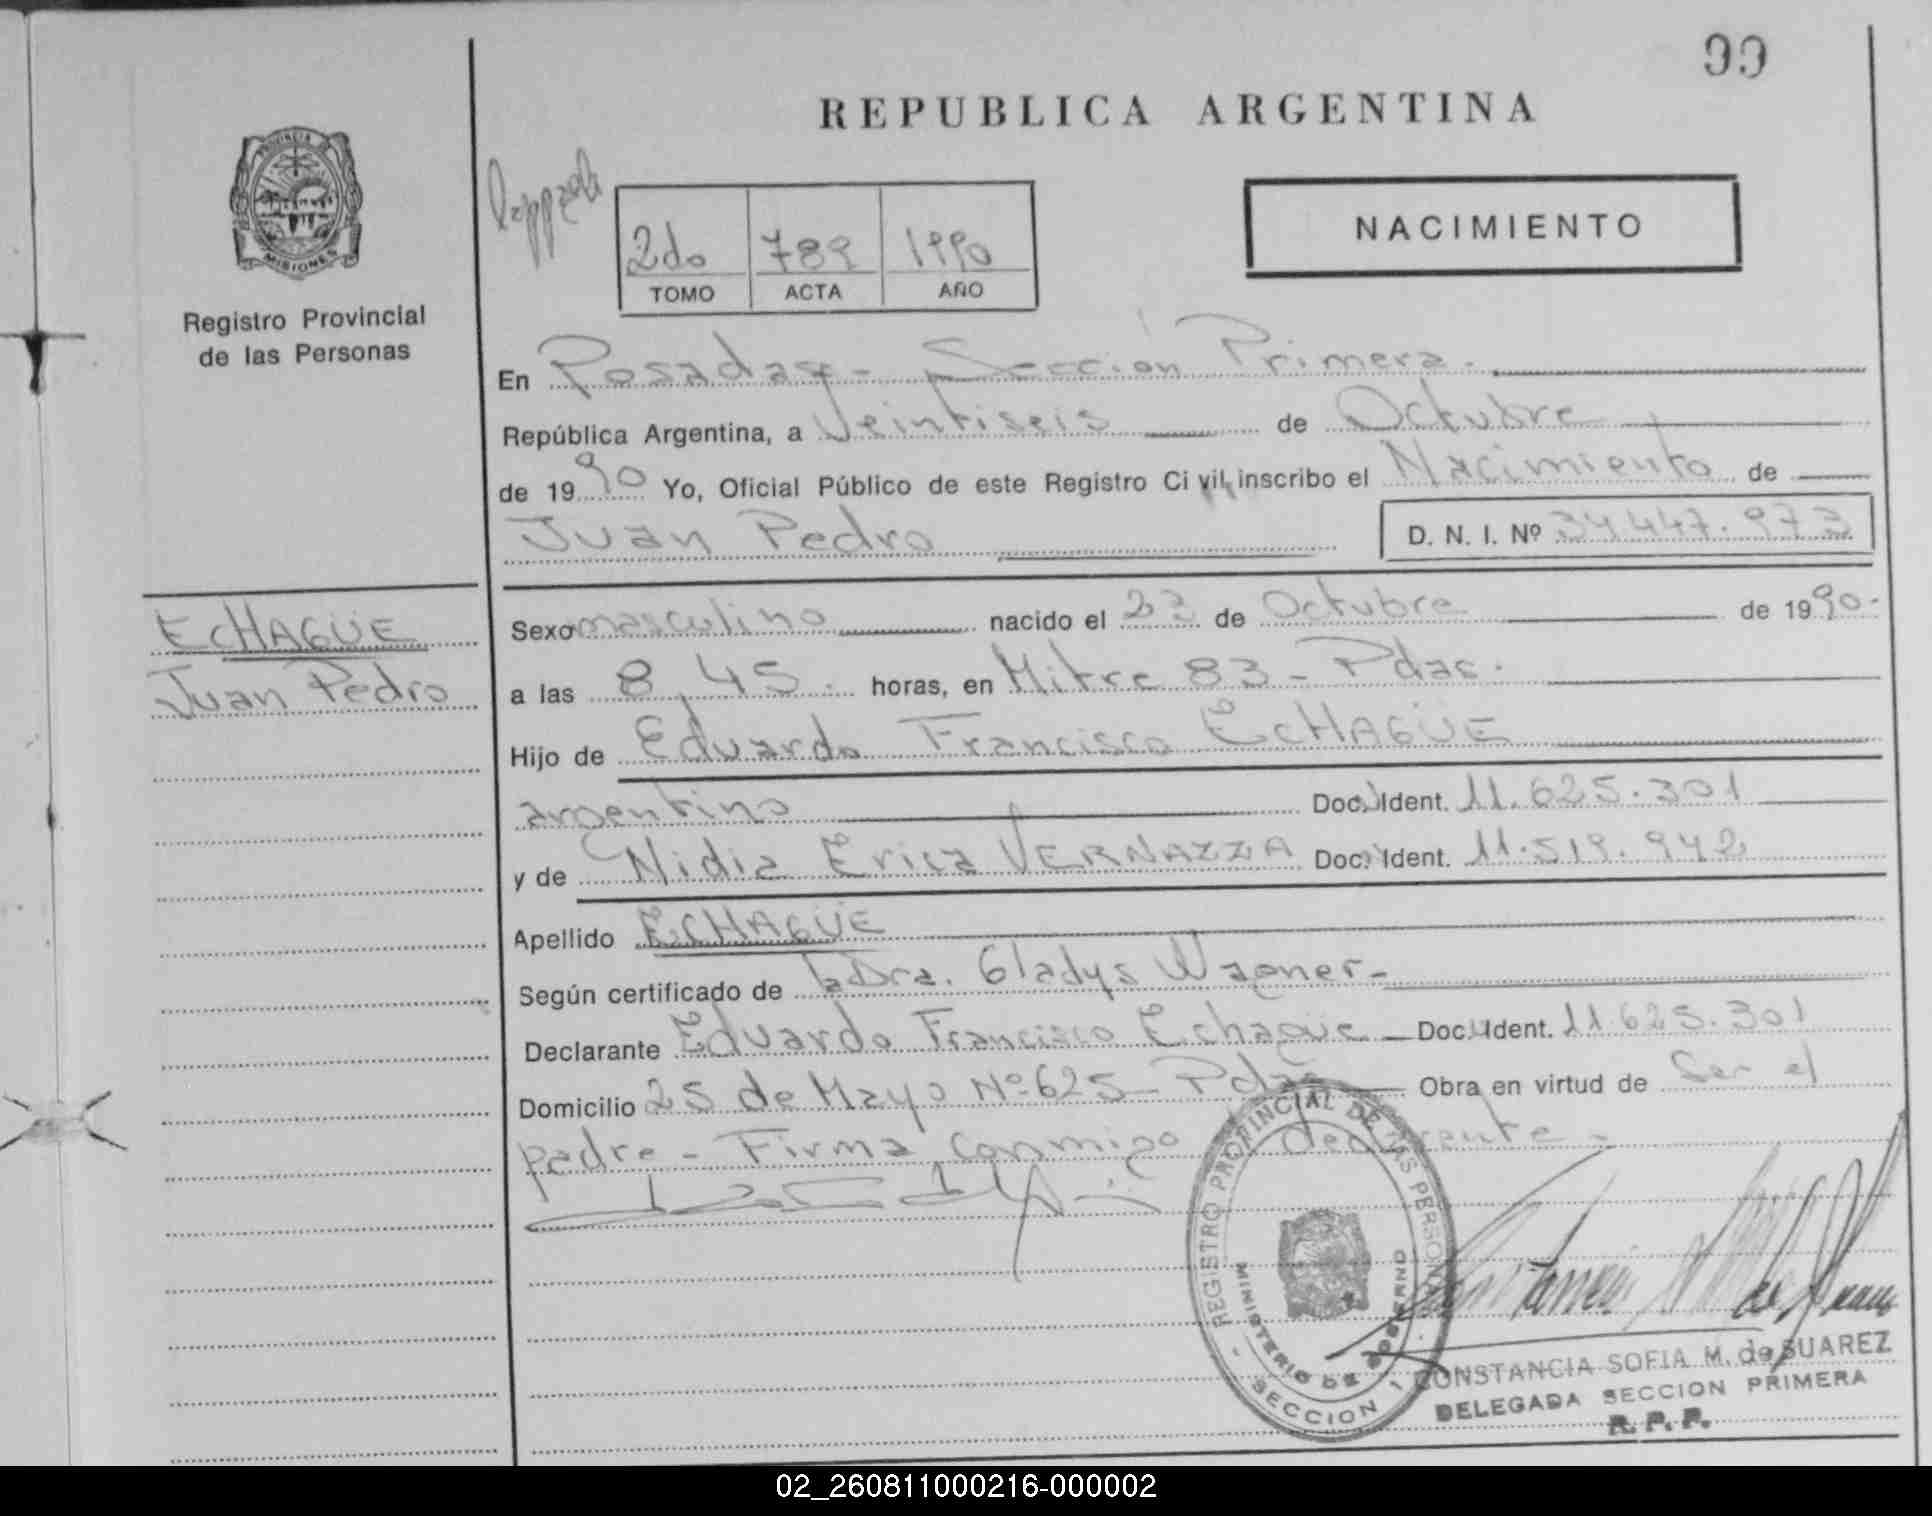 99
REPUBLICA ARGENTINA
PROVINCIA DE
MISIONES
Registro Provincial
de las Personas
2do 789 1990
TOMO ACTA AÑO
NACIMIENTO
En Posadas - Sección Primera.
República Argentina, a Veintiseis de Octubre
de 1990 Yo, Oficial Público de este Registro Ci vil, inscribo el Nacimiento de
Juan Pedro D. N. I. Nº 34.447.973
ECHAGÜE
Juan Pedro
Sexo masculino nacido el 23 de Octubre de 1990.
a las 8,45. horas, en Mitre 83 - Pdas.
Hijo de Eduardo Francisco ECHAGÜE
argentino Doc. Ident. 11.625.301
y de Nidia Erica VERNAZZA Doc. Ident. 11.519.942
Apellido ECHAGÜE
Según certificado de la Dra. Gladys Wagner-
Declarante Eduardo Francisco Echagüe - Doc. Ident. 11.625.301
Domicilio 25 de Mayo Nº 625 - Pdas Obra en virtud de Ser el
padre - Firma conmigo declarante -
REGISTRO PROVINCIAL DE LAS PERSONAS
MINISTERIO DE GOBIERNO
- SECCION 1 -
CONSTANCIA SOFIA M. de SUAREZ
DELEGADA SECCION PRIMERA
R. P. P.
02_260811000216-000002